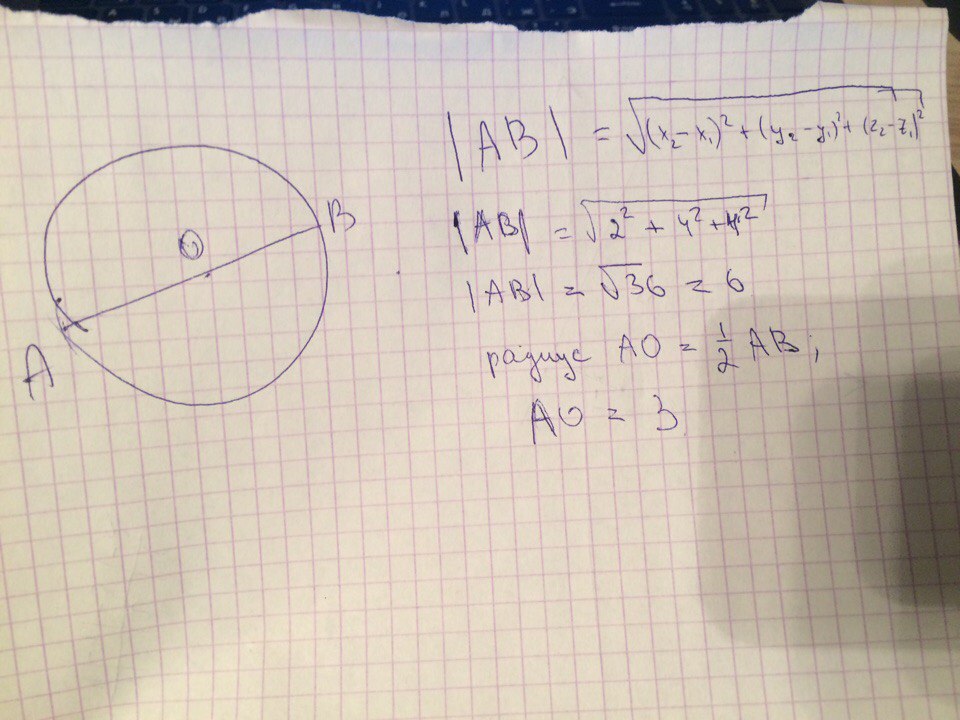 |AB| = √(x₂-x₁)²+(y₂-y₁)²+(z₂-z₁)²
|AB| = √2²+4²+4²
|AB| = √36 = 6
радиус AO = 1/2 AB;
AO = 3
O
B
A